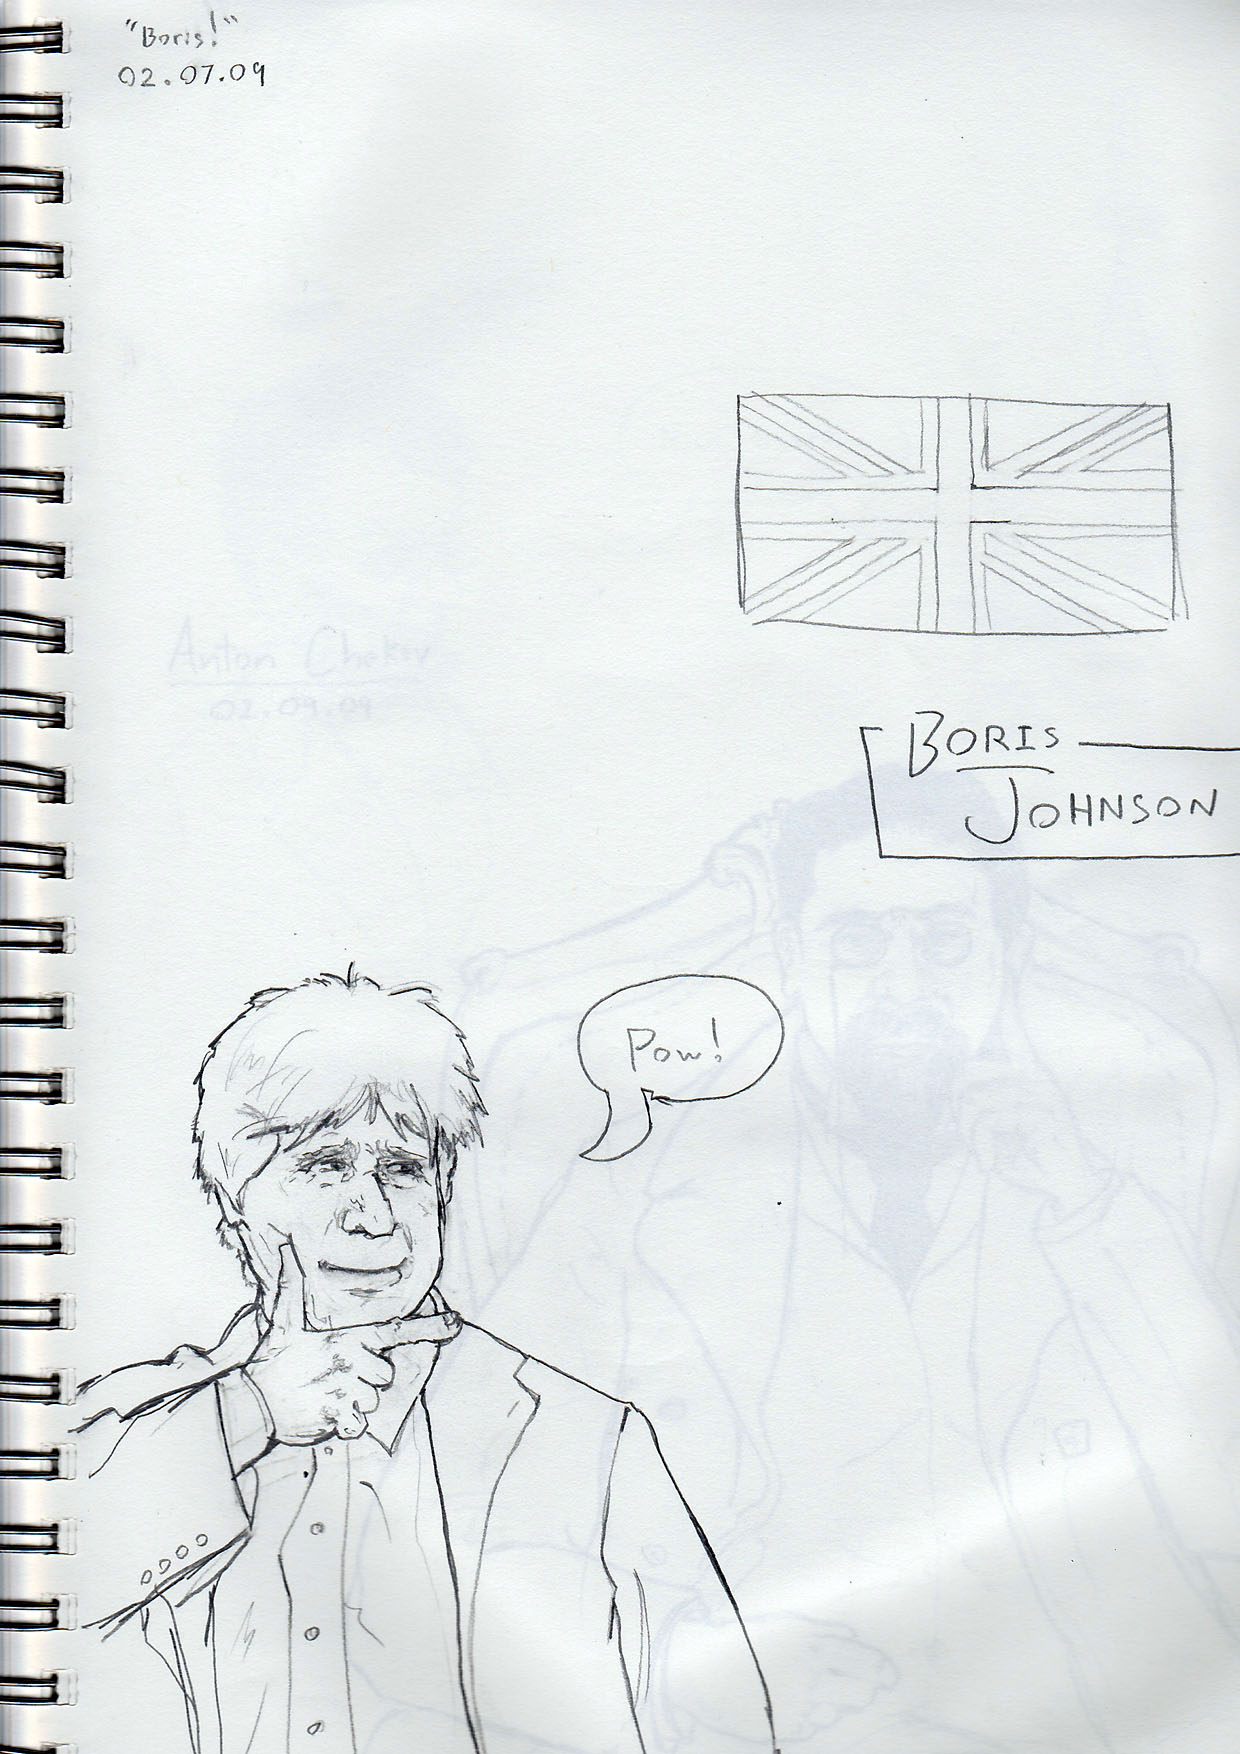 "Boris!"
02.07.09
Anton Chekov
02.09.09
BORIS
JOHNSON
Pow!